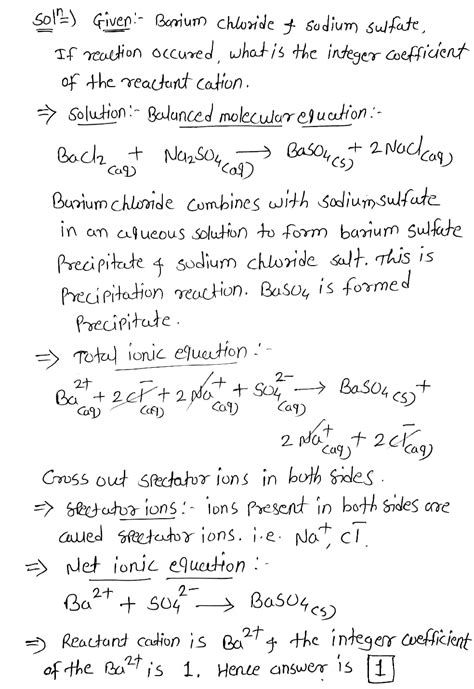 Solⁿ⇒ Given:- Barium chloride & sodium sulfate,
If reaction occured, what is the integer coefficient
of the reactant cation.
⇒ Solution:- Balanced molecular equation:-
BaCl₂(aq) + Na₂SO₄(aq) ⟶ BaSO₄(s) + 2NaCl(aq)
Barium chloride combines with sodium sulfate
in an aqueous solution to form barium sulfate
Precipitate & sodium chloride salt. This is
Precipitation reaction. BaSO₄ is formed
Precipitate.
⇒ Total ionic equation :-
Ba²⁺(aq) + 2Cl⁻(aq) + 2Na⁺(aq) + SO₄²⁻(aq) ⟶ BaSO₄(s) +
2Na⁺(aq) + 2Cl⁻(aq)
Cross out spectator ions in both sides.
⇒ Spectator ions:- ions Present in both sides are
called spectator ions. i.e. Na⁺, Cl⁻.
⇒ Net ionic equation :-
Ba²⁺ + SO₄²⁻ ⟶ BaSO₄(s)
⇒ Reactant cation is Ba²⁺ & the integer coefficient
of the Ba²⁺ is 1. Hence answer is 1